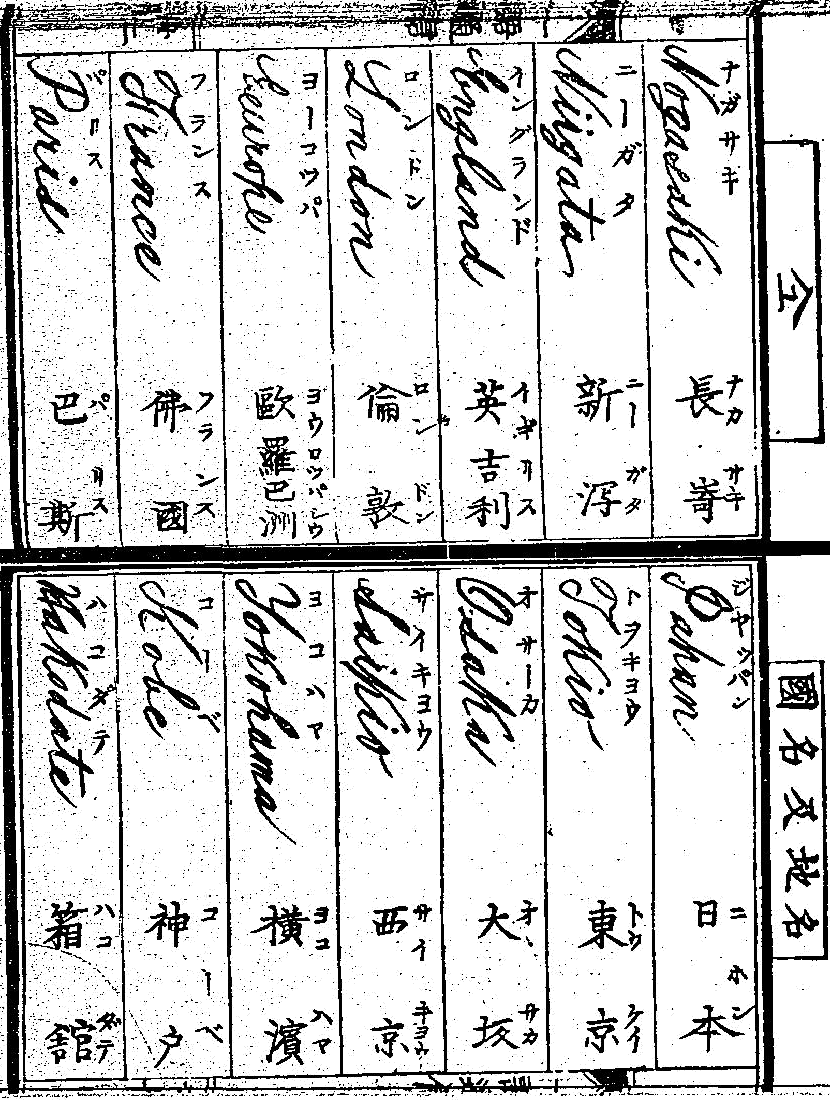 國名及地名
ジヤツパン
Japan
ニホン
日本
トヲキヨウ
Tokio
トウケイ
東京
オサーカ
Osaka
オヽサカ
大坂
サイキヨウ
Saikio
サイキヨウ
西京
ヨコハマ
Yokohama
ヨコハマ
横濱
コーベ
Kobe
コーベ
神戸
ハコダテ
Hakodate
ハコダテ
箱舘
仝
ナガサキ
Nagasaki
ナカサキ
長崎
ニーガタ
Niigata
ニーガタ
新泻
イングランド
England
イギリス
英吉利
ロンドン
London
ロンドン
倫敦
ヨーロツパ
Europe
ヨウロツパシウ
歐羅巴洲
フランス
France
フランス
佛國
パリス
Paris
パリス
巴斯